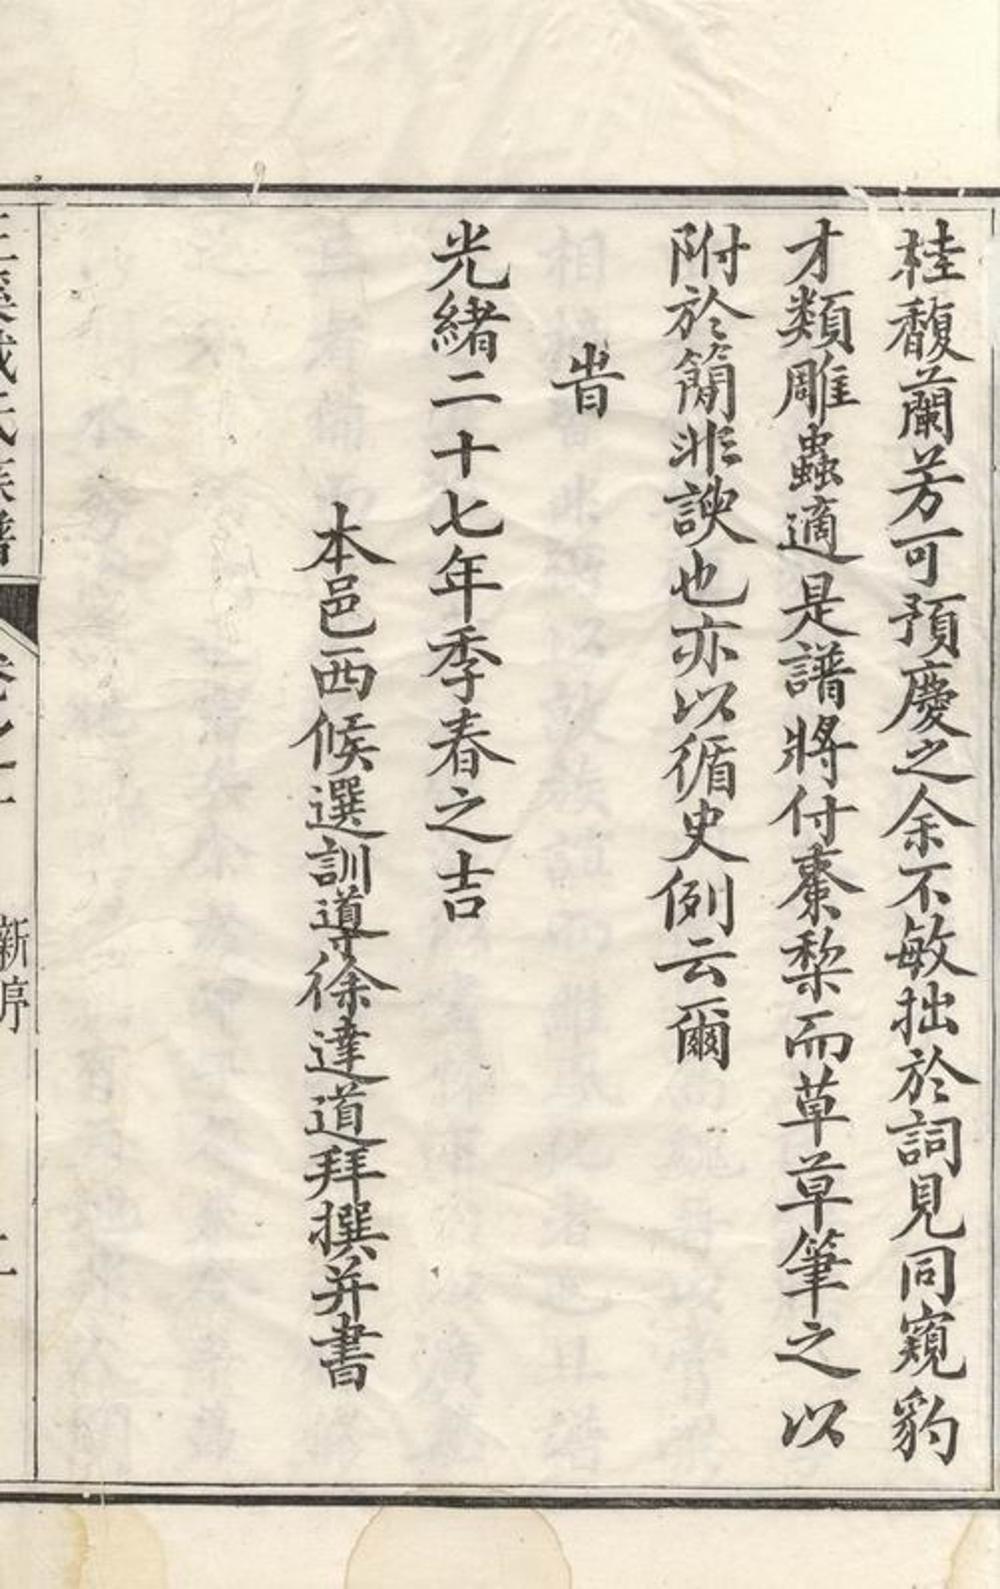 桂馥蘭芳可預慶之余不敏拙於詞見同窺豹
才類雕蟲適是譜將付棗棃而草草筆之以
附於簡非諛也亦以循史例云爾
旹
光緒二十七年季春之吉
本邑西候選訓導徐達道拜撰并書
氏族譜
卷之一
新序